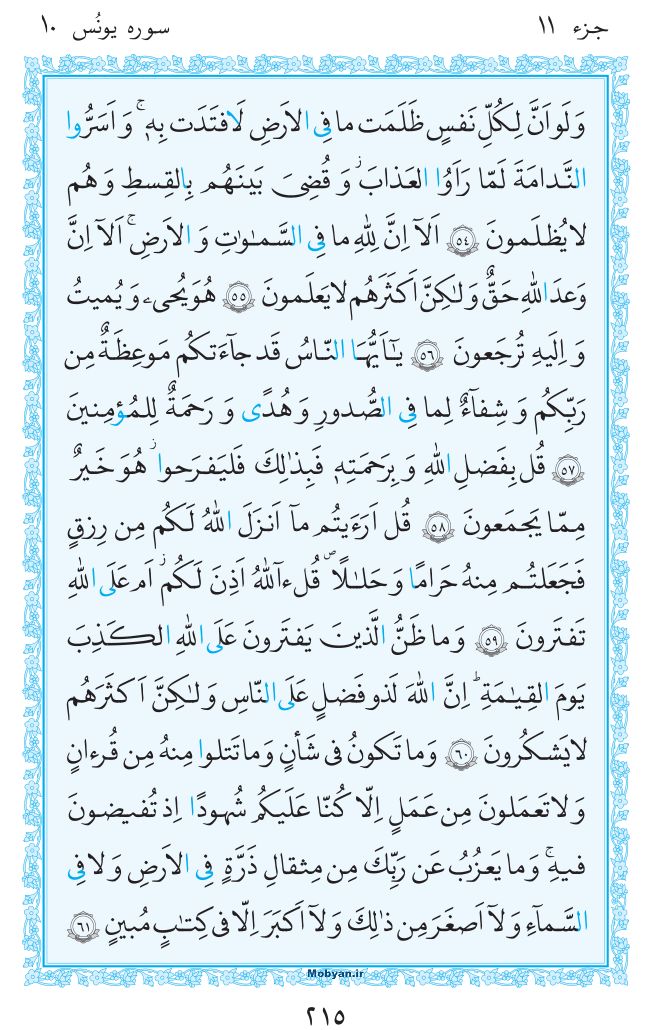 جزء ۱۱
سوره یونُس ۱۰
وَ لَو اَنَّ لِکُلِّ نَفسٍ ظَلَمَت ما فِی الاَرضِ لَافتَدَت بِهٖ ۚ وَ اَسَرُّوا
النَّدامَةَ لَمّا رَاَوُا العَذابَ ۖ وَ قُضِیَ بَینَهُم بِالقِسطِ وَ هُم
لا یُظلَمونَ ﴿۵۴﴾ اَلآ اِنَّ لِلّٰهِ ما فِی السَّمٰـوٰتِ وَ الاَرضِ ۚ اَلآ اِنَّ
وَعدَ اللّٰهِ حَقٌّ وَ لٰـکِنَّ اَکثَرَهُم لا یَعلَمونَ ﴿۵۵﴾ هُوَ یُحیٖ وَ یُمیتُ
وَ اِلَیهِ تُرجَعونَ ﴿۵۶﴾ یٰٓاَیُّهَا النّاسُ قَد جآءَتکُم مَوعِظَةٌ مِن
رَبِّکُم وَ شِفآءٌ لِما فِی الصُّدورِ وَ هُدًی وَ رَحمَةٌ لِلمُؤمِنینَ
﴿۵۷﴾ قُل بِفَضلِ اللّٰهِ وَ بِرَحمَتِهٖ فَبِذٰلِکَ فَلیَفرَحوا ۖ هُوَ خَیرٌ
مِمّا یَجمَعونَ ﴿۵۸﴾ قُل اَرَءَیتُم مآ اَنزَلَ اللّٰهُ لَکُم مِن رِزقٍ
فَجَعَلتُم مِنهُ حَرامًا وَ حَلٰـلًا ۖ قُل ءآللّٰهُ اَذِنَ لَکُم ۖ اَم عَلَی اللّٰهِ
تَفتَرونَ ﴿۵۹﴾ وَ ما ظَنُّ الَّذینَ یَفتَرونَ عَلَی اللّٰهِ الکَذِبَ
یَومَ القِیٰـمَةِ ۗ اِنَّ اللّٰهَ لَذو فَضلٍ عَلَی النّاسِ وَ لٰـکِنَّ اَکثَرَهُم
لا یَشکُرونَ ﴿۶۰﴾ وَ ما تَکونُ فی شَأنٍ وَ ما تَتلوا مِنهُ مِن قُرءانٍ
وَ لا تَعمَلونَ مِن عَمَلٍ اِلّا کُنّا عَلَیکُم شُهودًا اِذ تُفیضونَ
فیهِ ۚ وَ ما یَعزُبُ عَن رَبِّکَ مِن مِثقالِ ذَرَّةٍ فِی الاَرضِ وَ لا فِی
السَّمآءِ وَ لآ اَصغَرَ مِن ذٰلِکَ وَ لآ اَکبَرَ اِلّا فی کِتٰبٍ مُبینٍ ﴿۶۱﴾
Mobyan.ir
۲۱۵